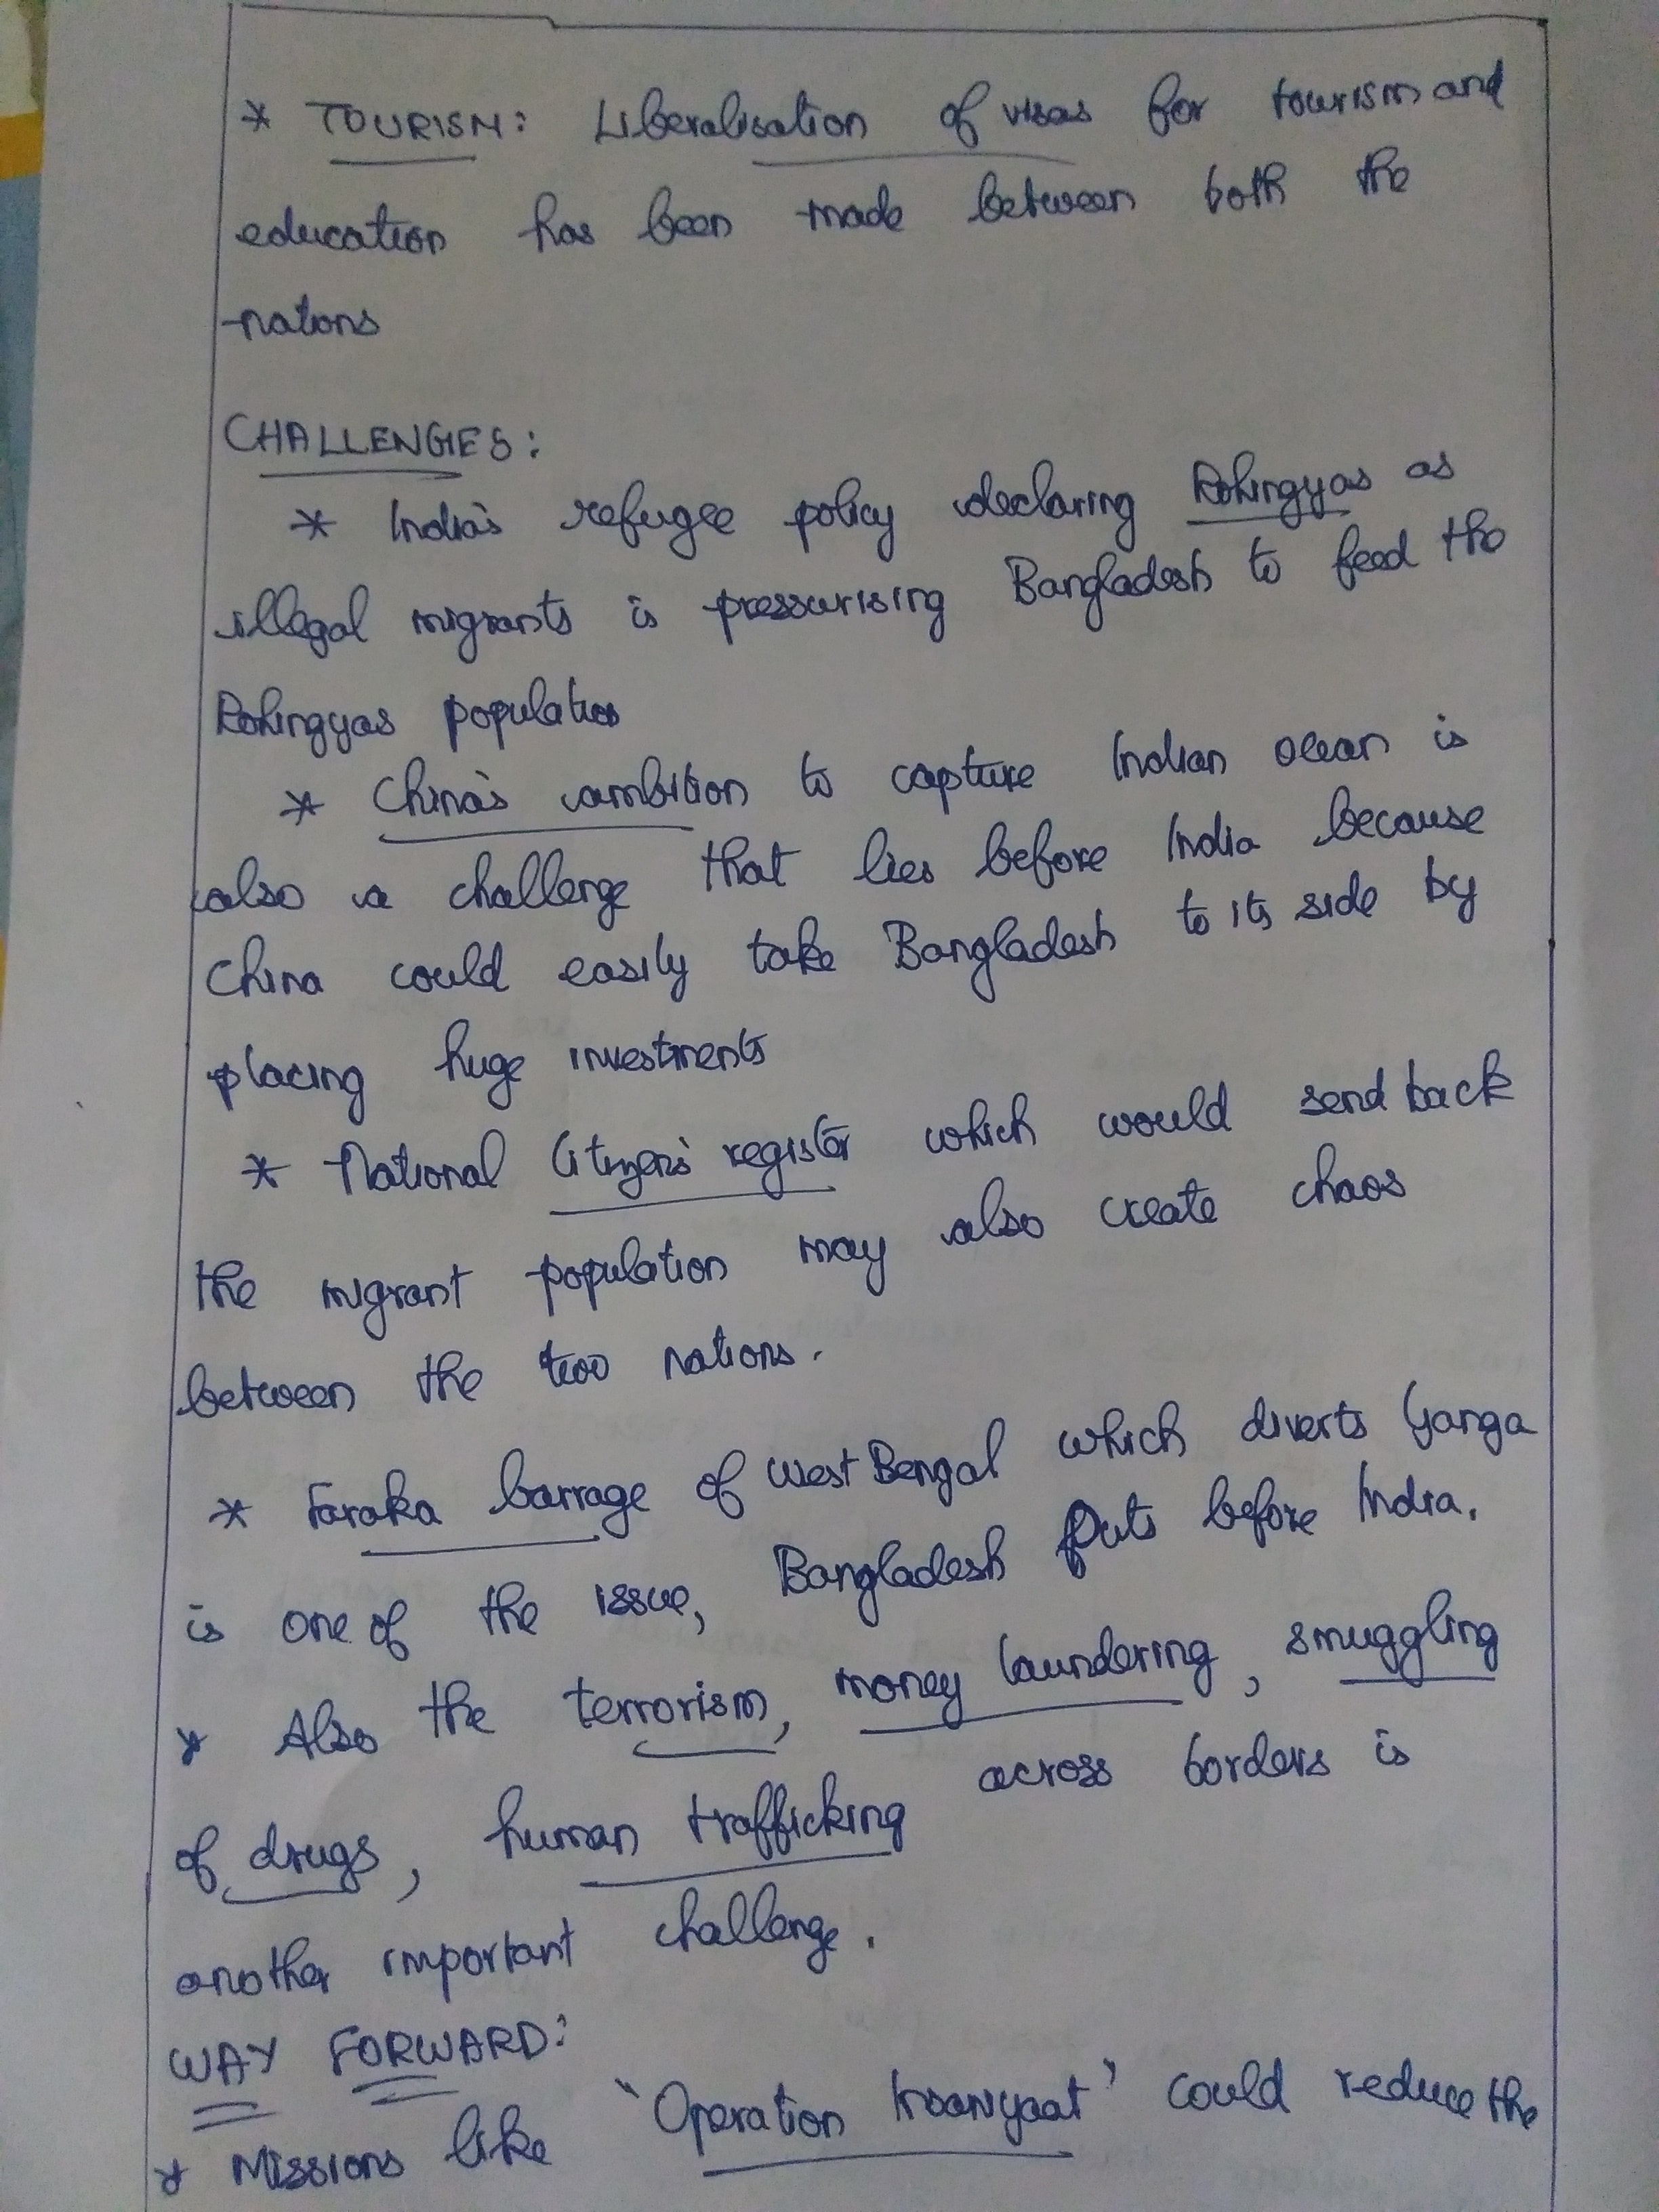 * TOURISM: Liberalisation of visas for tourism and
education has been made between both the
nations
CHALLENGES:
* India's refugee policy declaring Rohingyas as
illegal migrants is pressurising Bangladesh to feed the
Rohingyas population
* China's ambition to capture Indian ocean is
also a challenge that lies before India because
China could easily take Bangladesh to its side by
placing huge investments
* National Citizens' register which would send back
the migrant population may also create chaos
between the two nations.
* Faraka barrage of West Bengal which diverts Ganga
is one of the issue, Bangladesh puts before India.
* Also the terrorism, money laundering, smuggling
of drugs, human trafficking across borders is
another important challenge.
WAY FORWARD:
* Missions like 'Operation Insaniyaat' could reduce the